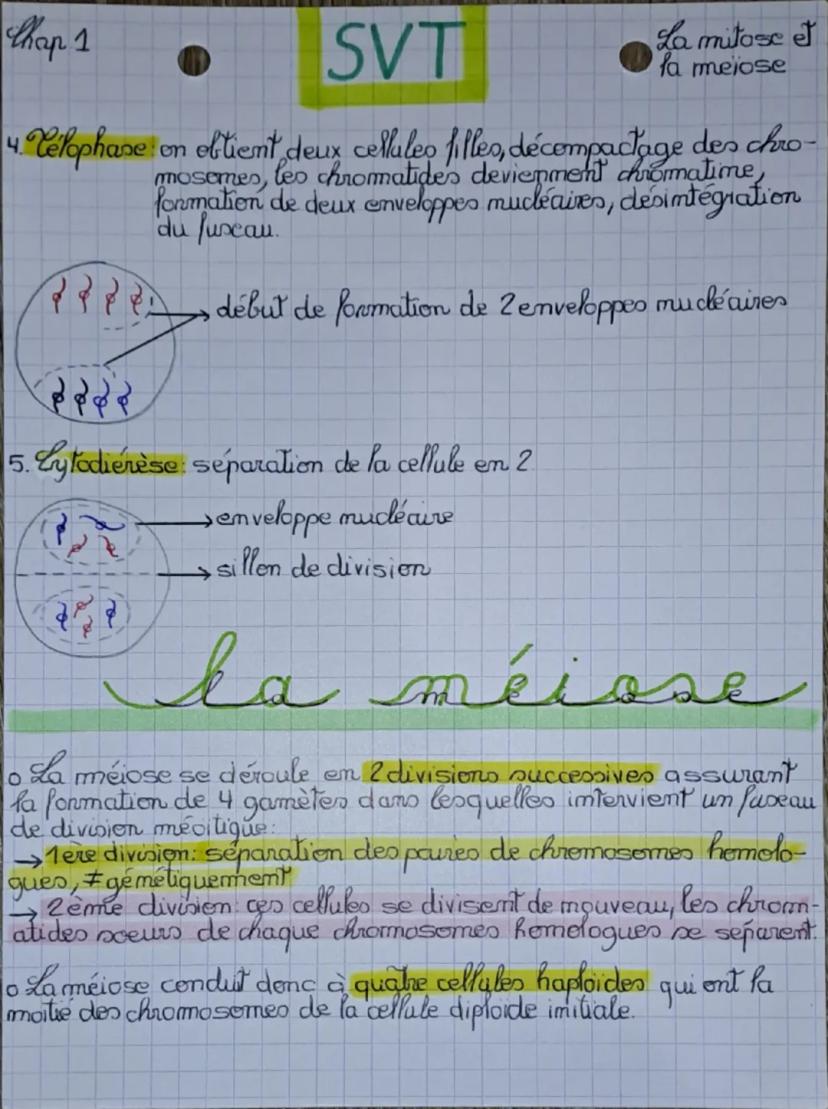 Chap 1
SVT
La mitose et
la meiose
4. Télophase: on obtient deux cellules filles, décompactage des chro-
mosomes, les chromatides deviennent chromatine,
formation de deux enveloppes nucléaires, désintégration
du fuseau.
début de formation de 2 enveloppes nucléaires
5. Cytodiérèse: séparation de la cellule en 2
enveloppe nucléaire
sillon de division
la méiose
o La méiose se déroule en 2 divisions successives assurant
la formation de 4 gamètes dans lesquelles intervient un fuseau
de division méoitique:
→ 1ère division: séparation des paires de chromosomes homolo-
gues, ≠ génétiquement
→ 2ème division: ces cellules se divisent de nouveau, les chrom-
atides soeurs de chaque chromosomes homologues se séparent.
o La méiose conduit donc à quatre cellules haploïdes qui ont la
moitié des chromosomes de la cellule diploïde initiale.